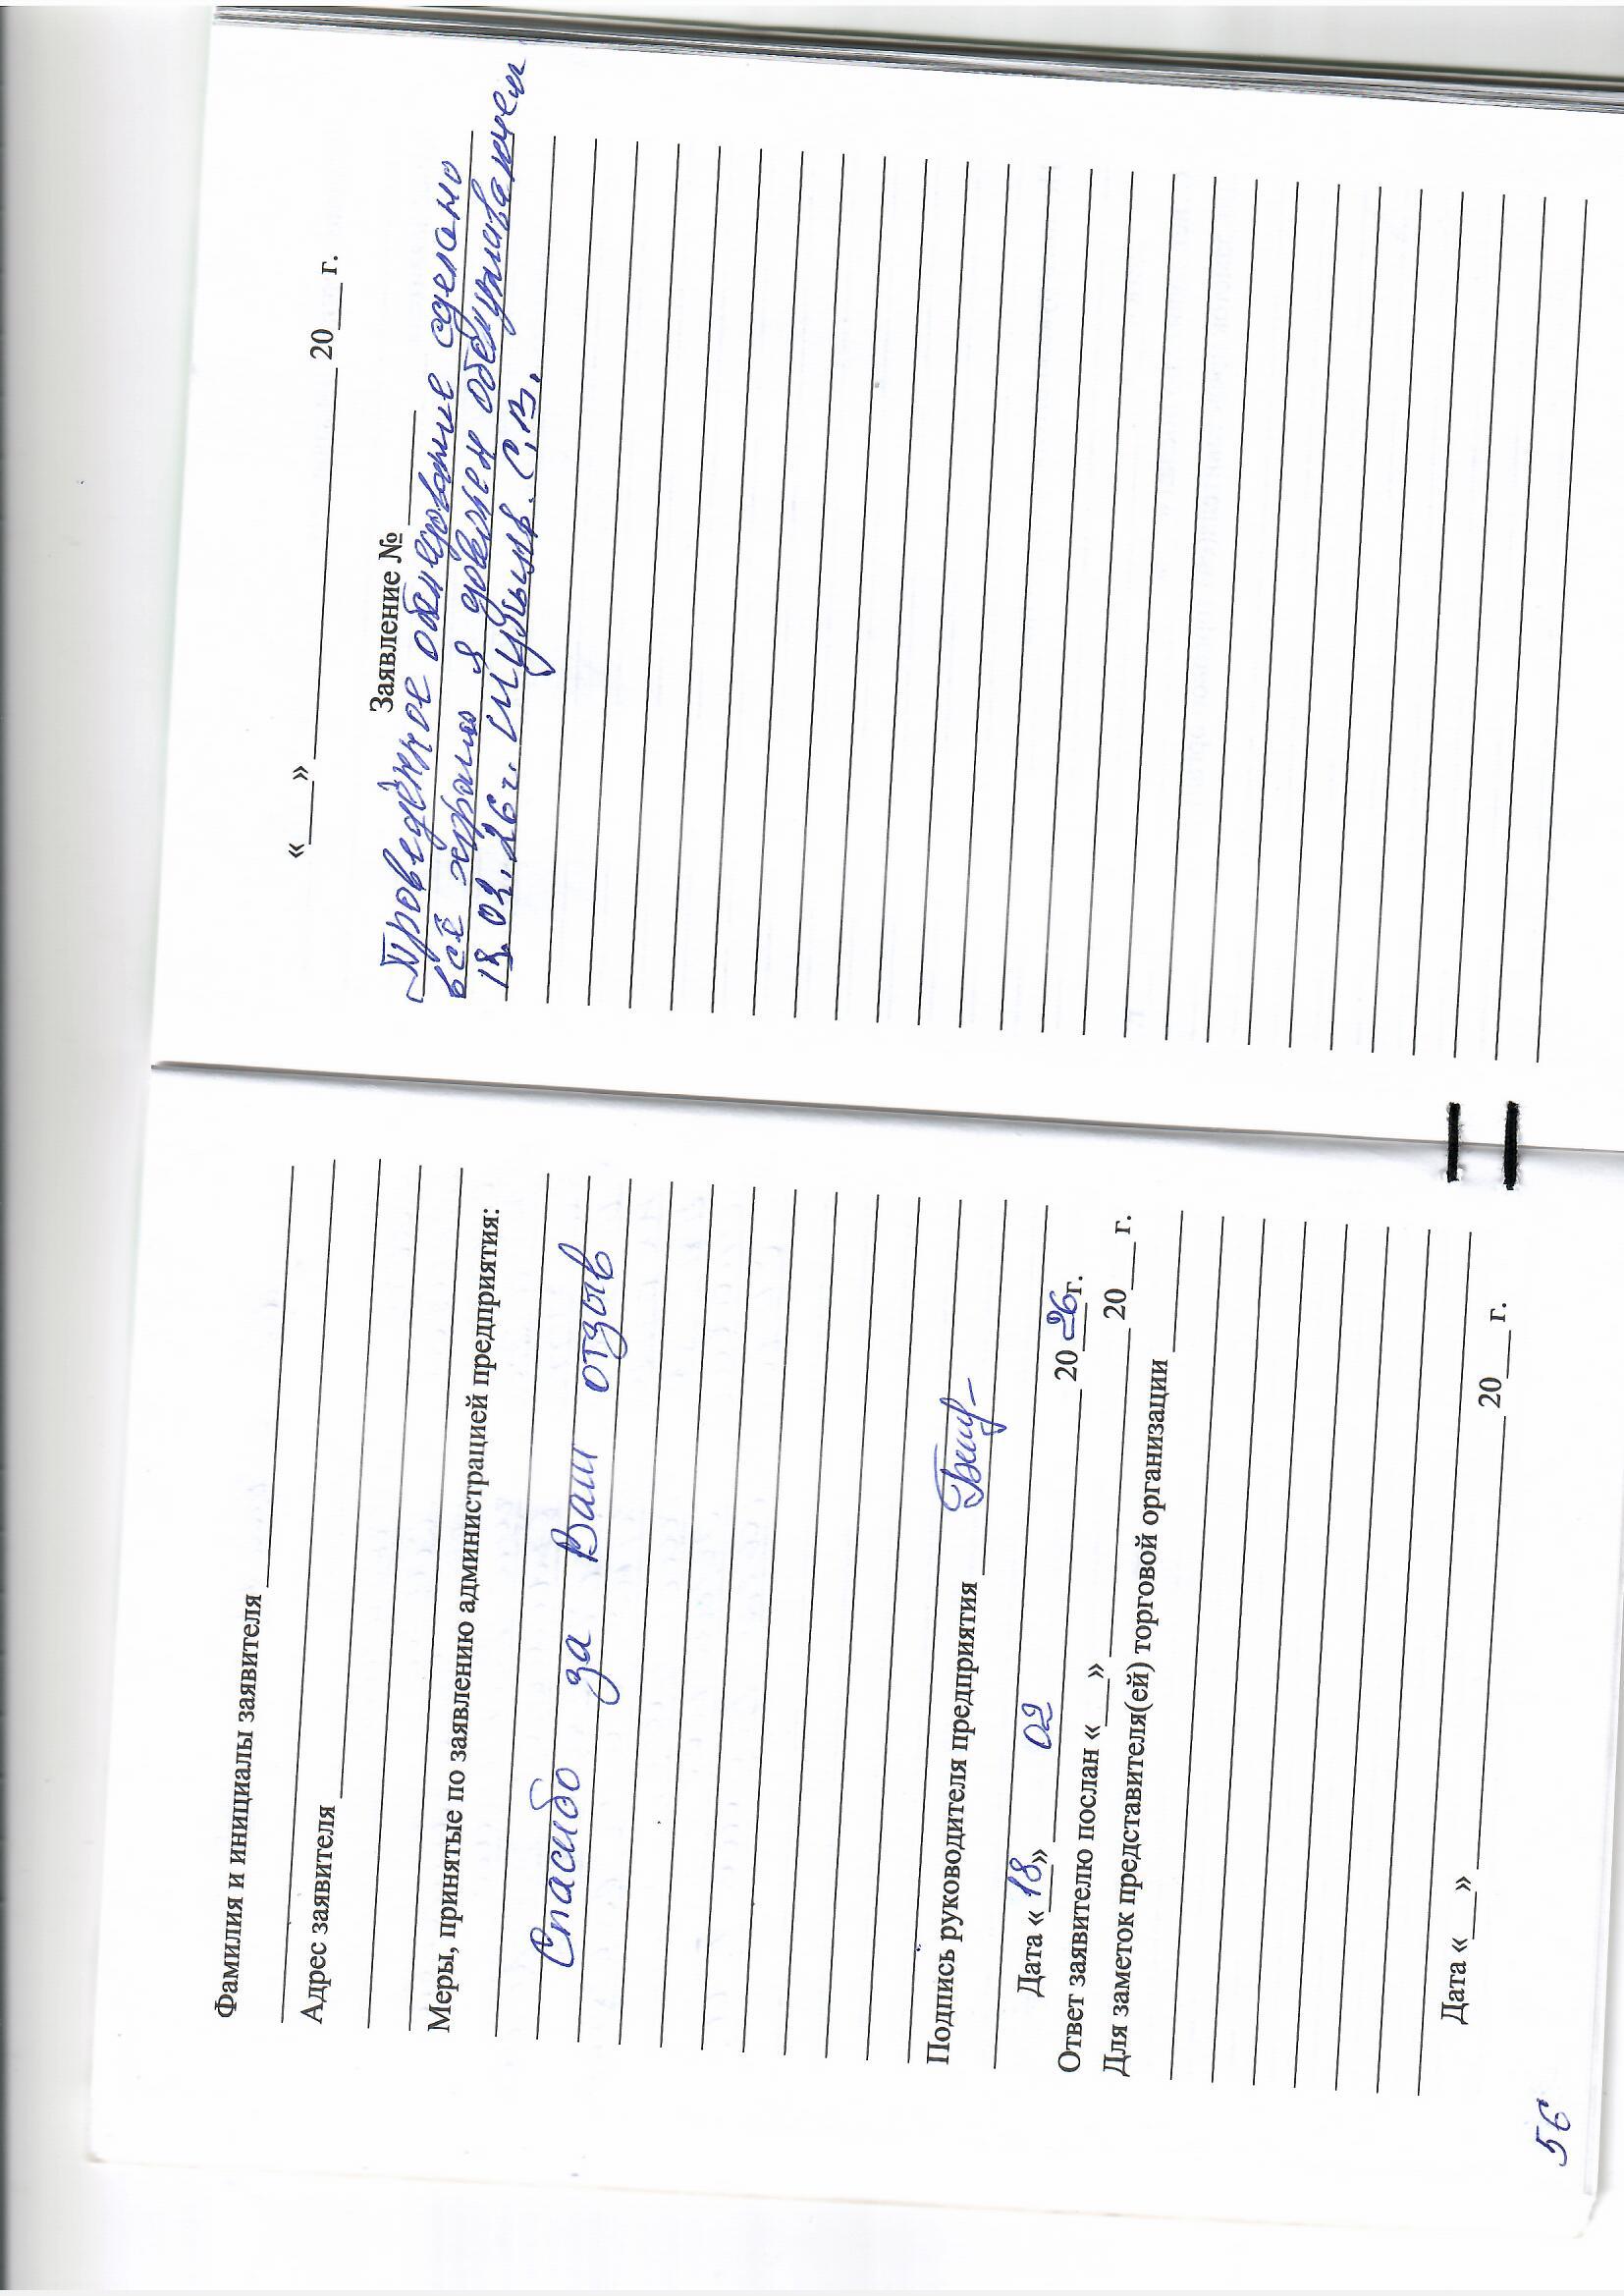 Фамилия и инициалы заявителя
Адрес заявителя
Меры, принятые по заявлению администрацией предприятия:
Спасибо за Ваш отзыв
Подпись руководителя предприятия
Дата «18» 02 2026г.
Ответ заявителю послан «___» ______ 20___ г.
Для заметок представителя(ей) торговой организации
Дата «___» ______ 20___ г.
56
«___» ______ 20___ г.
Заявление № ______
Проведённое сделано
всё я доволен обслуживанием
18.02.26г. С.В.